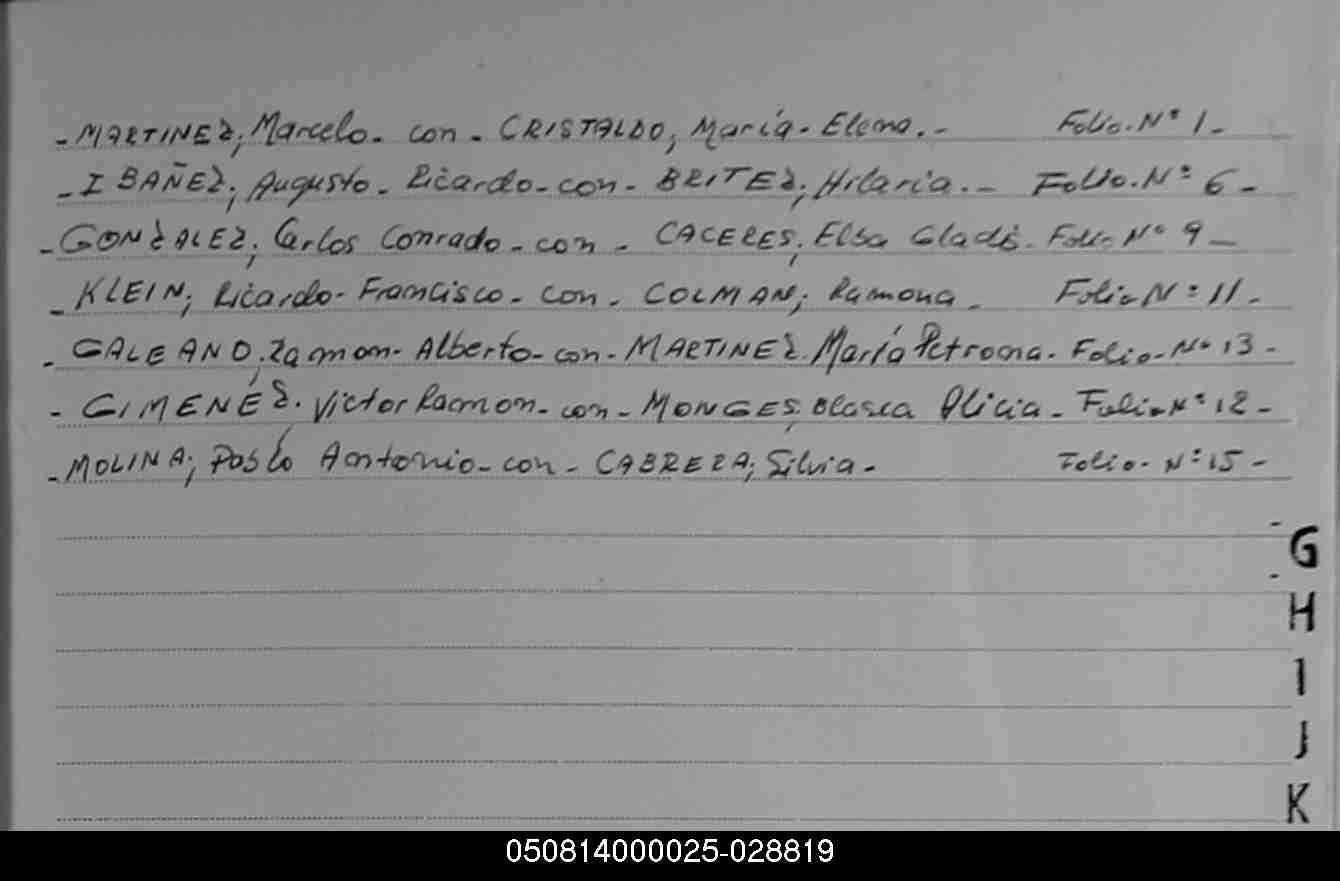 - MARTINEZ; Marcelo - con - CRISTALDO; María - Elena. - Folio. Nº 1 -
- IBAÑEZ; Augusto - Ricardo - con - BRITEZ; Hilaria. - Folio. Nº 6 -
- GONZALEZ; Carlos Conrado - con - CACERES; Elsa Gladis. Folio Nº 9 -
- KLEIN; Ricardo - Francisco - con - COLMAN; Ramona - Folio Nº 11 -
- GALEANO; Ramon - Alberto - con - MARTINEZ. María Petrona. Folio - Nº 13 -
- GIMENÉZ. Victor Ramon - con - MONGES; Blasia Alicia - Folio - Nº 12 -
- MOLINA; Pablo Antonio - con - CABRERA; Silvia - Folio - Nº 15 -
G
H
I
J
K
050814000025-028819